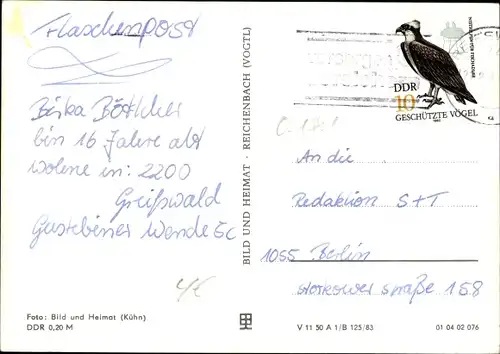 Flaschenpost
Böttcher
bin 16 Jahre alt
wohne in: 2200
Greifswald
Gustebiner Wende 5c
4€
Foto: Bild und Heimat (Kühn)
DDR 0,20 M
BILD UND HEIMAT · REICHENBACH (VOGTL)
DDR
10
GESCHÜTZTE VÖGEL
An die
Redaktion S+T
1055 Berlin
Storkower Straße 158
V 11 50 A 1/B 125/83
01 04 02 076